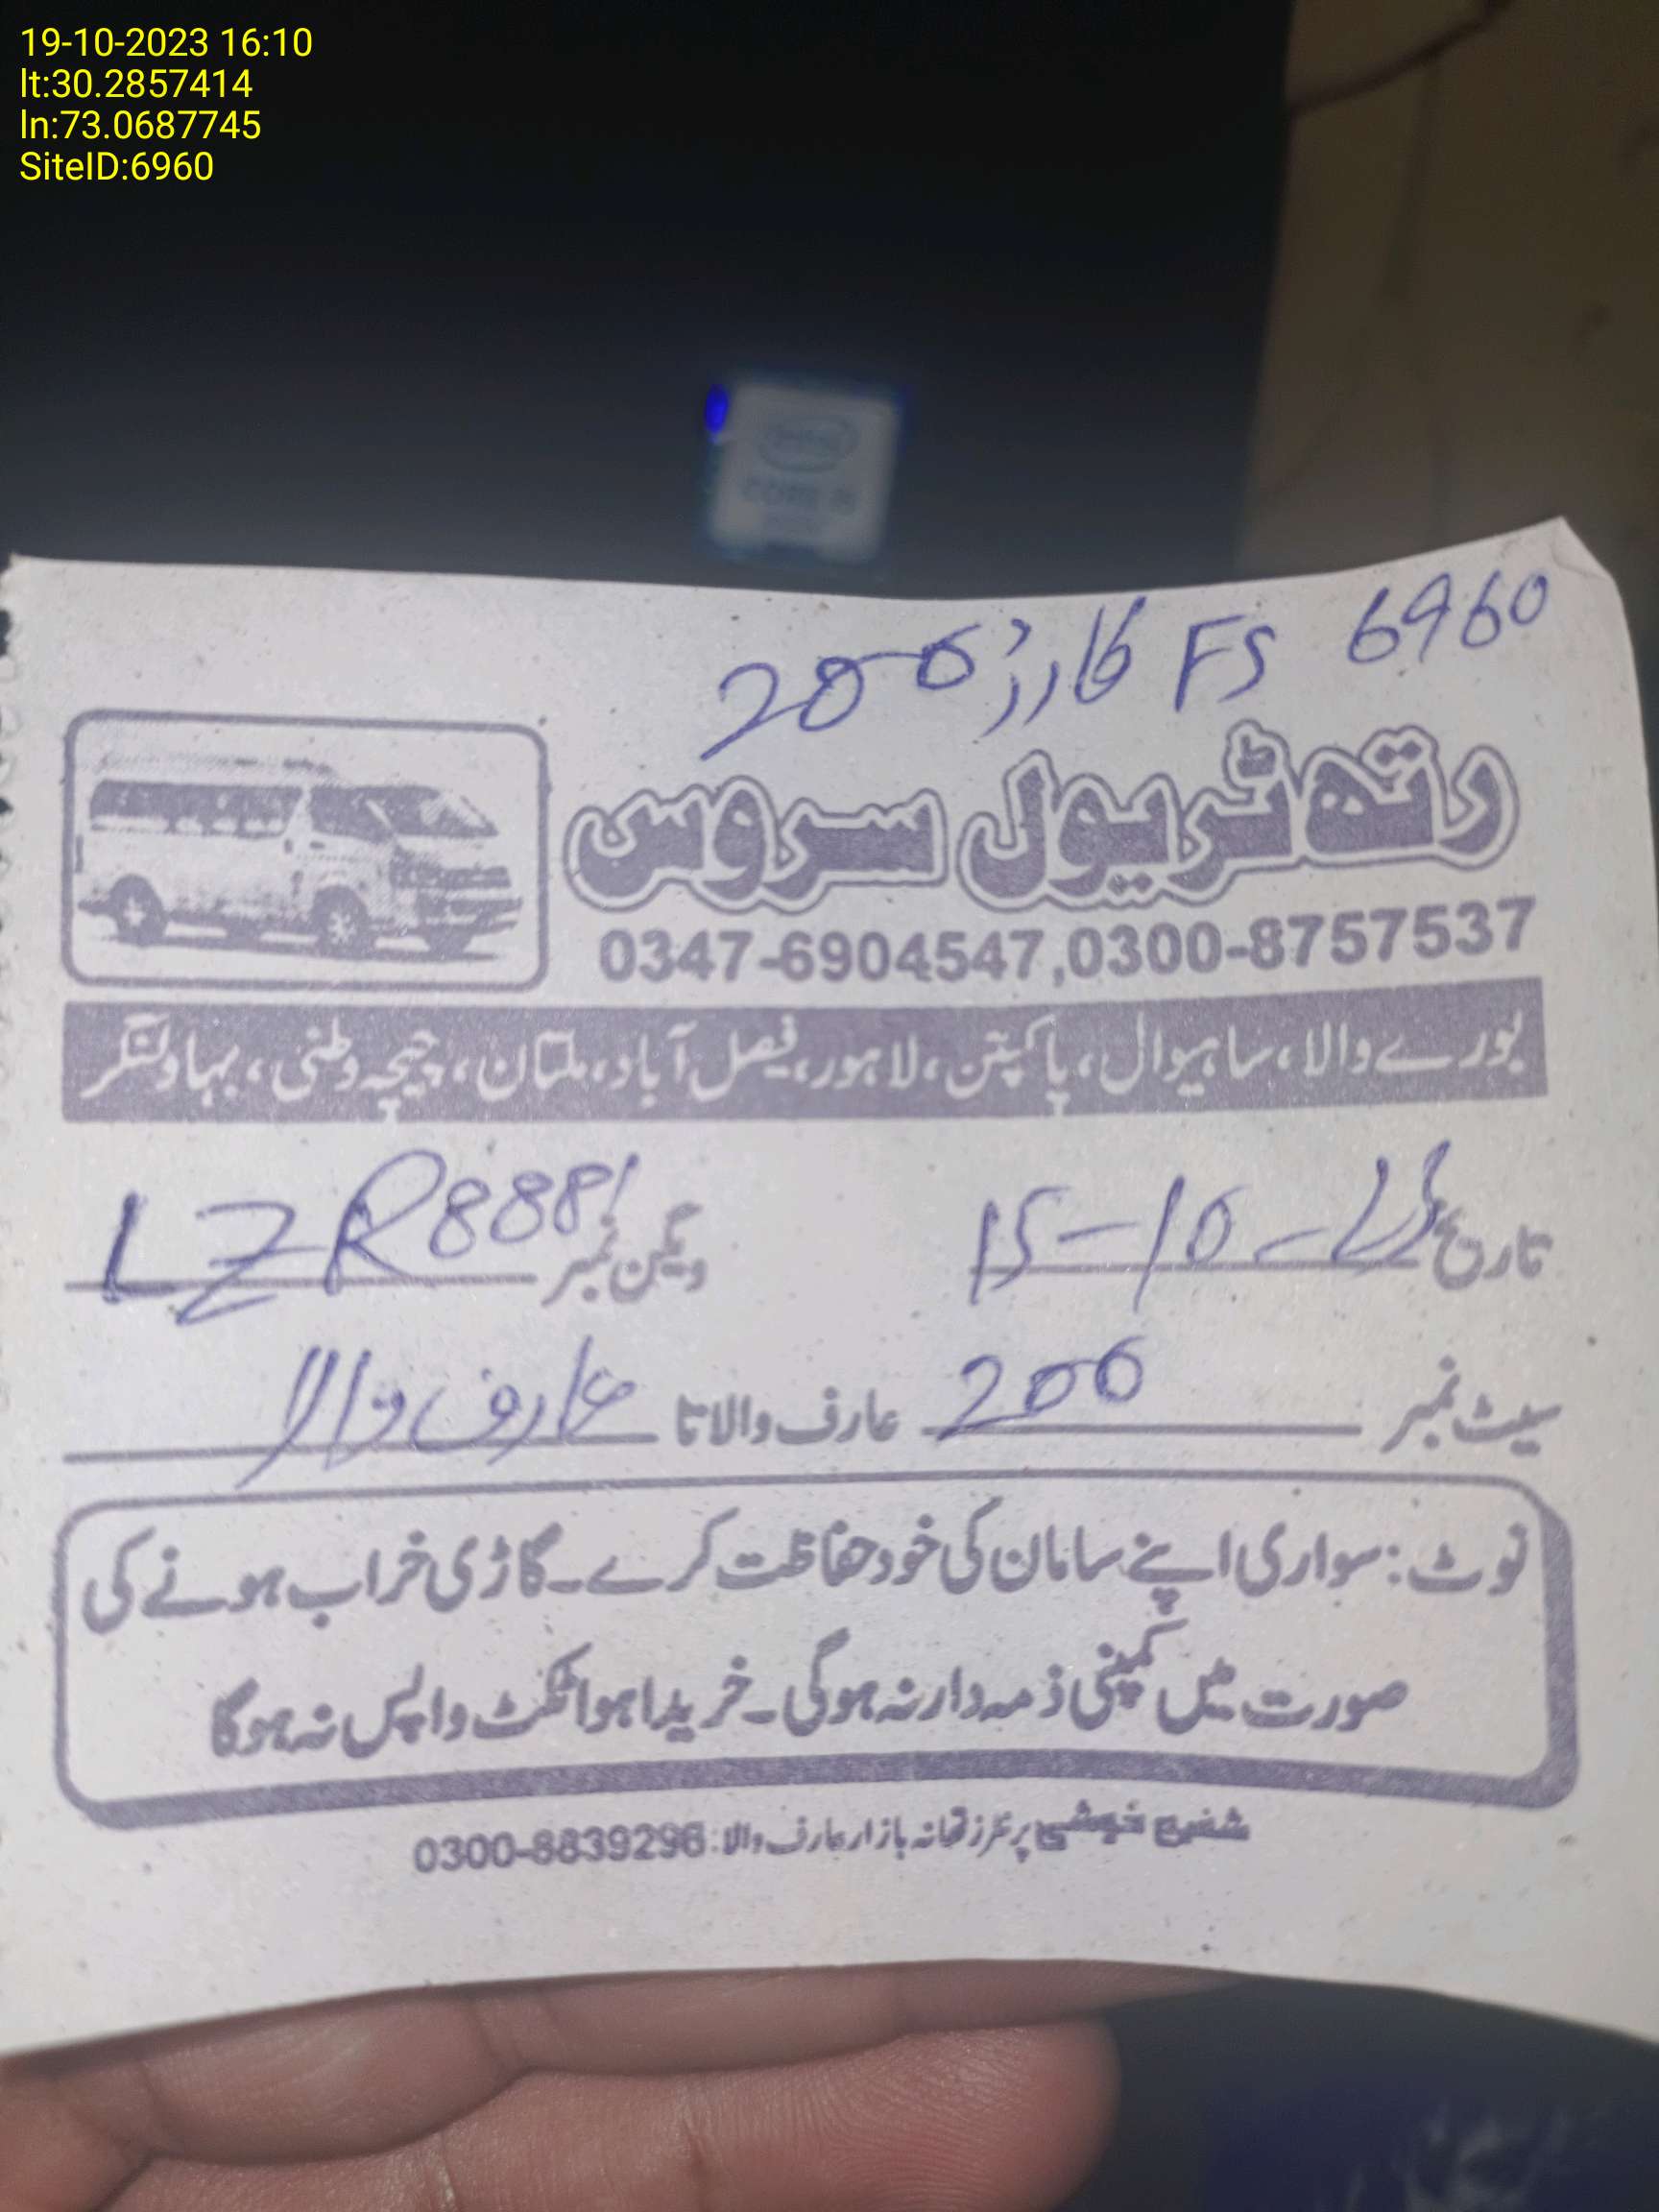 19-10-2023 16:10
lt:30.2857414
ln:73.0687745
SiteID:6960
intel
CORE i5
6960 FS 200
رتھ ٹریول سروس
0347-6904547,0300-8757537
بورے والا، ساہیوال، پاکپتن، لاہور، فیصل آباد، ملتان، چیچہ وطنی، بہاولنگر
تاریخ 15-10-23 ویگن نمبر LZR8881
سیٹ نمبر 200 عارف والا تا عارف والا
نوٹ: سواری اپنے سامان کی خود حفاظت کرے۔ گاڑی خراب ہونے کی
صورت میں کمپنی ذمہ دار نہ ہوگی۔ خریدا ہوا ٹکٹ واپس نہ ہوگا
پرنٹرز تھانہ بازار عارف والا: 0300-8839296